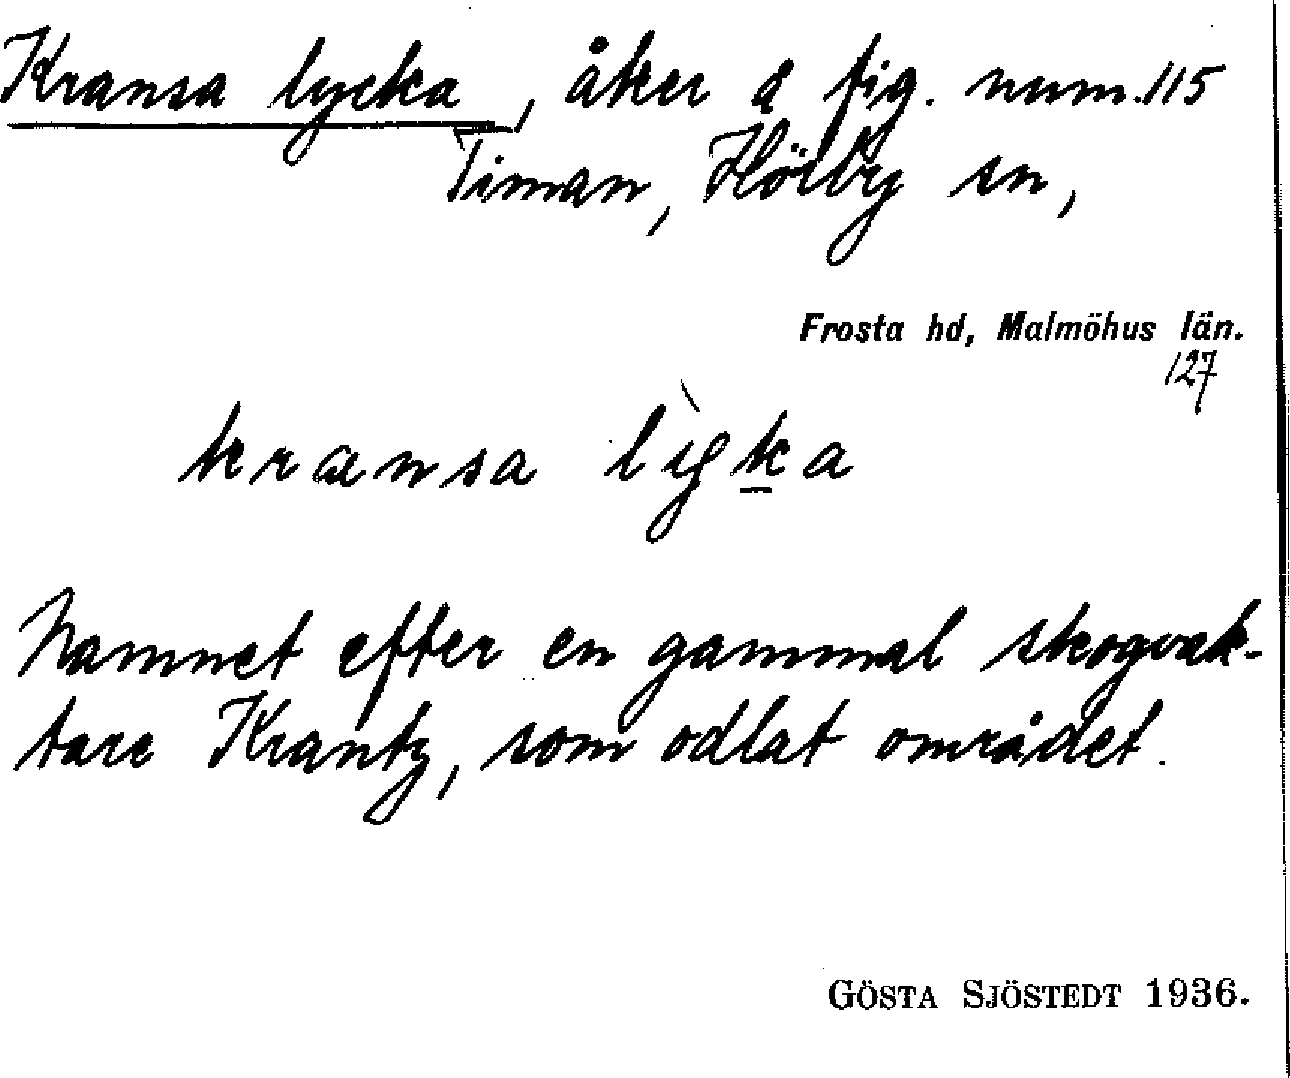 Kransa lycka, åker å fig. num. 115
Timan, Hörby sn,
Frosta hd, Malmöhus län.
127
kransa lỳka
Namnet efter en gammal skogvak-
tare Krantz, som odlat området.
GÖSTA SJÖSTEDT 1936.